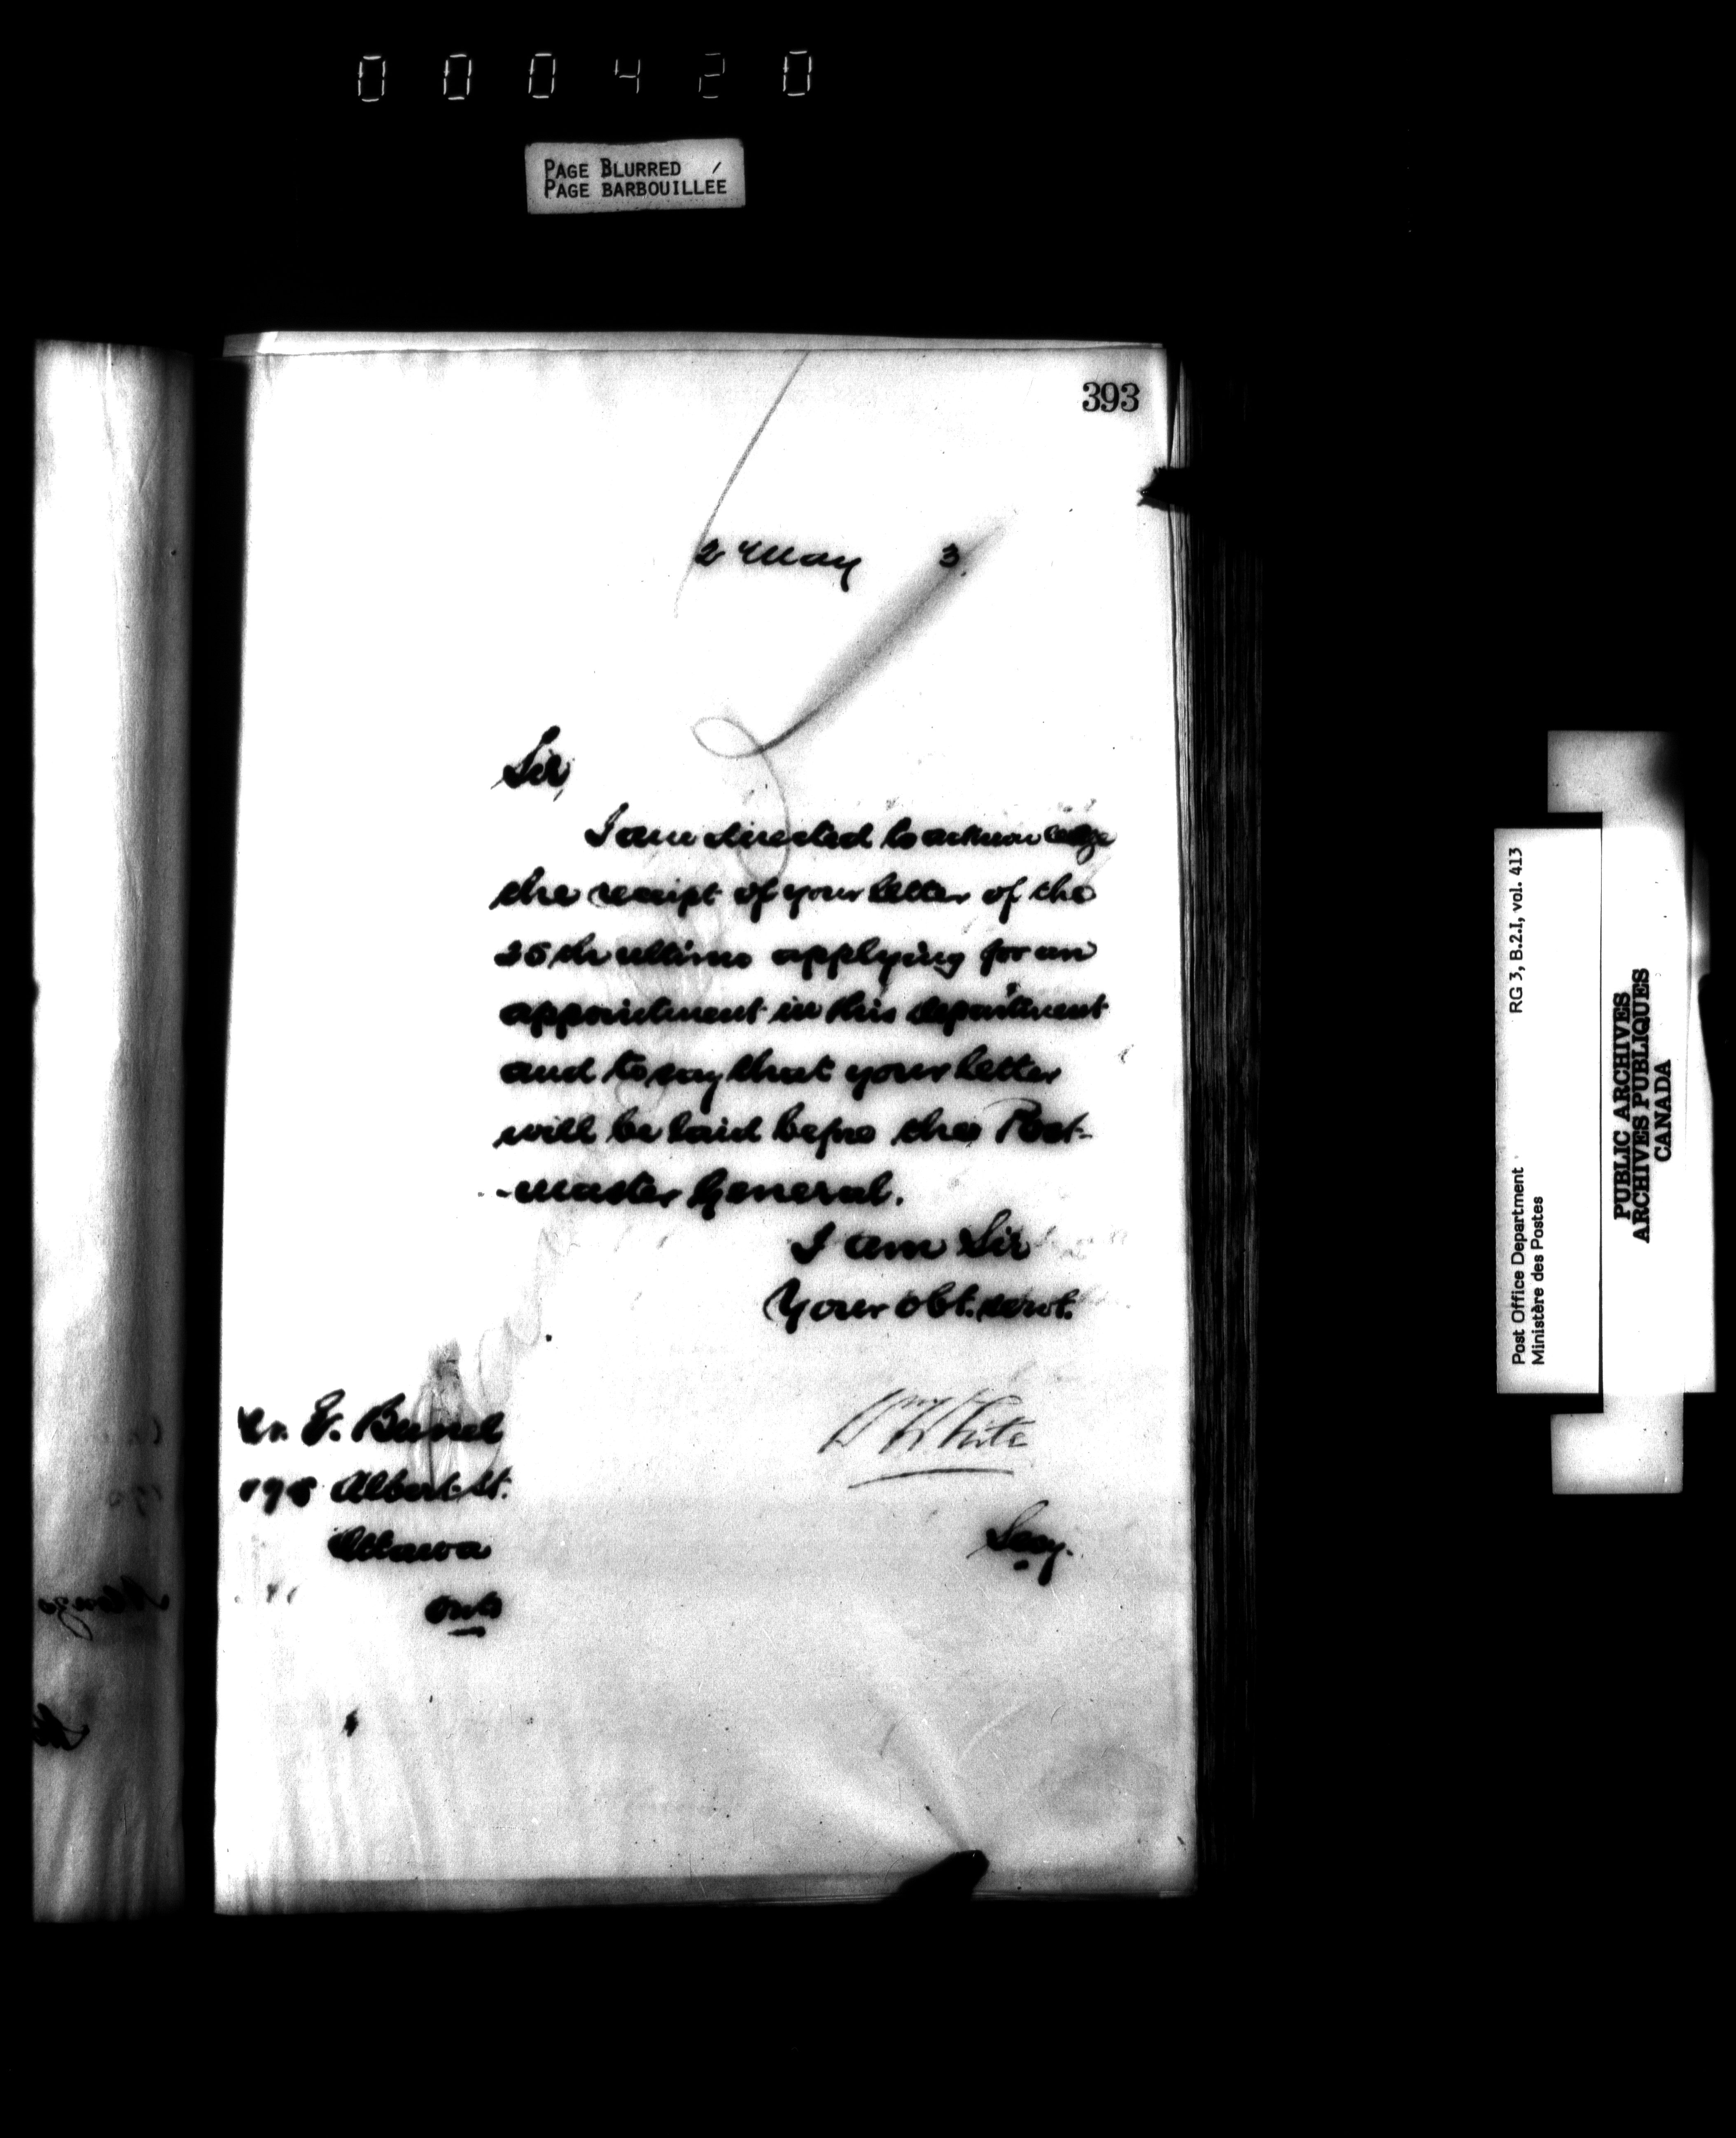 000420
PAGE BLURRED
PAGE BARBOUILLÉE
393
2 May 3.
Sir,
I am directed to acknowledge
the receipt of your letter of the
25th ultimo applying for an
appointment in this department
and to say that your letter
will be laid before the Post-
-master General.
I am Sir
Your obt. servt.
Wm White
Secy.
E.
Albert St.
Ottawa
Ont
Post Office Department RG 3, B.2.I, vol. 413
Ministère des Postes
PUBLIC ARCHIVES
ARCHIVES PUBLIQUES
CANADA